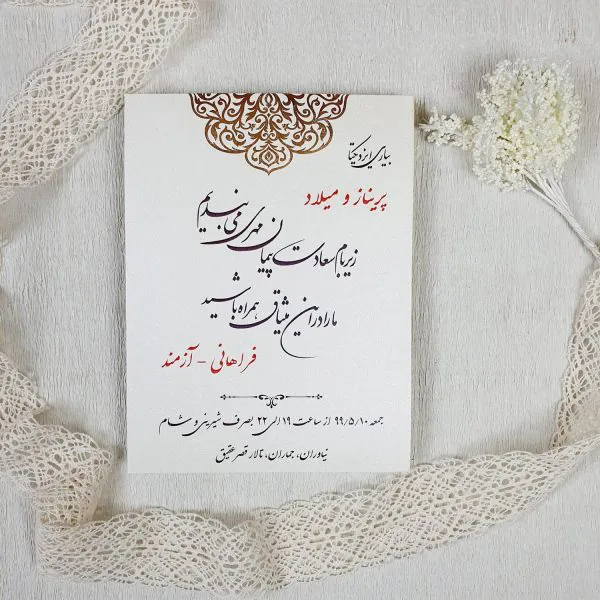 بیاری ایزد یکتا
پریناز و میلاد
زیر بام سعادت پیمان مهری می بندیم
ما را در این میثاق همراه باشید
فراهانی - آزمند
جمعه ۹۹/۵/۱۰ از ساعت ۱۹ الی ۲۲ بصرف شیرینی و شام
نیاوران، جماران، تالار قصر عقیق